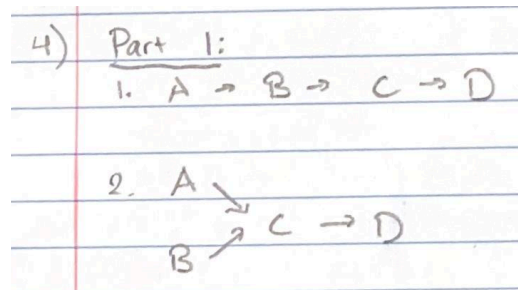 4) Part 1:
1. A → B → C → D
2. A ↘
C → D
B ↗